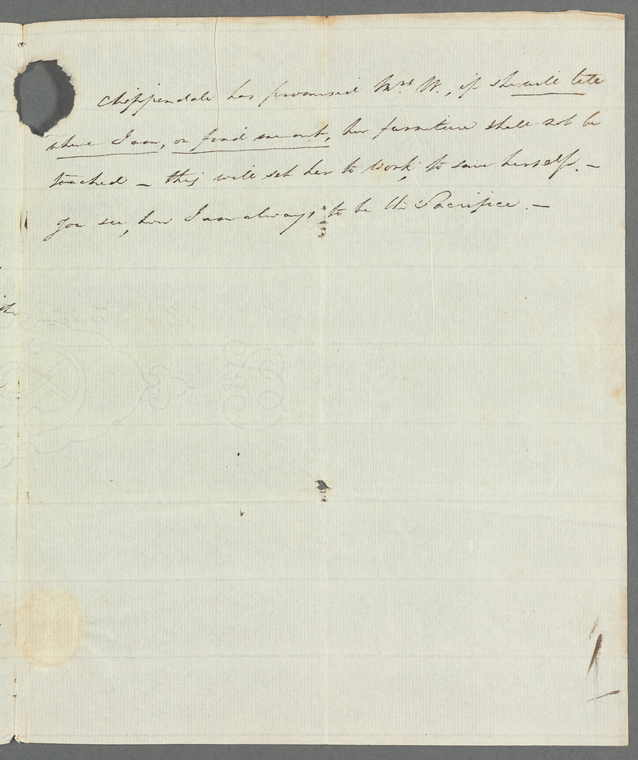 Chippendale has promised Mrs W., if she will tele
where I am, or find me out, her furniture shall not be
touched – this will set her to work, to save herself. –
You see, how I am always to be the Sacrifice. –